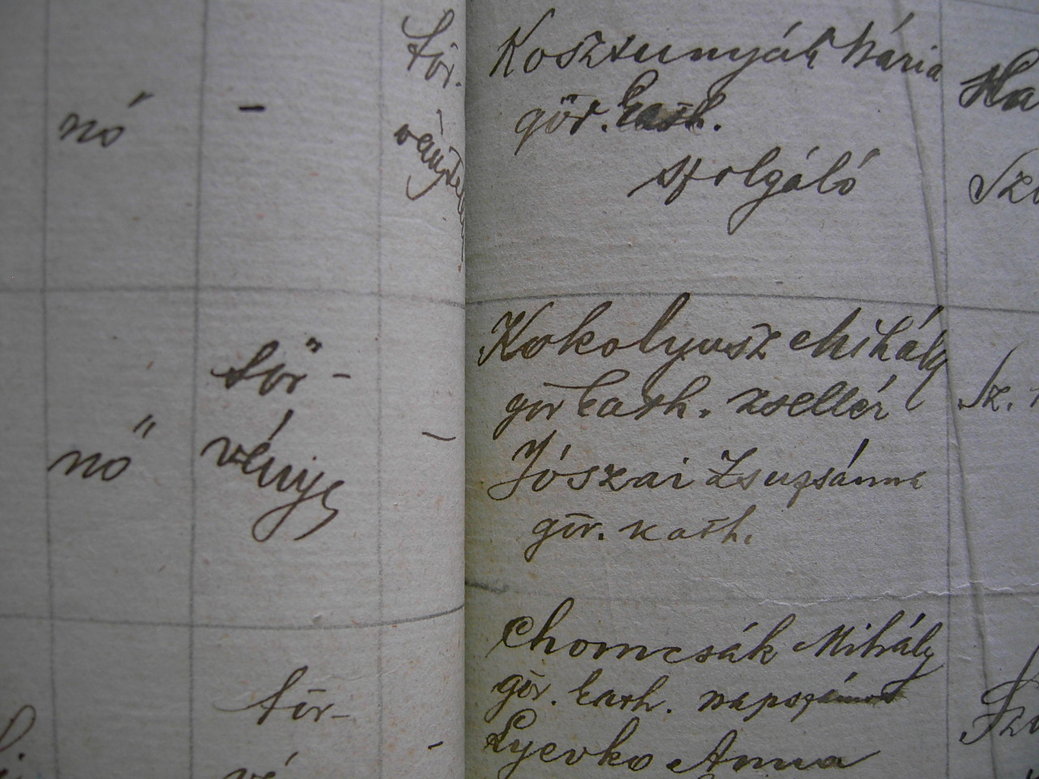 tör-
nő -
vénytelen
Kosztunyák Mária
gör. kath.
szolgáló
nő
tör-
vénye
-
Kokolyusz Mihály
gör kath. zsellér
Jószai Zsuzsánna
gör. kath.
tör-
vé
-
Chomcsák Mihály
gör. kath. napszámos
Lyevko Anna
Ha
Sz.